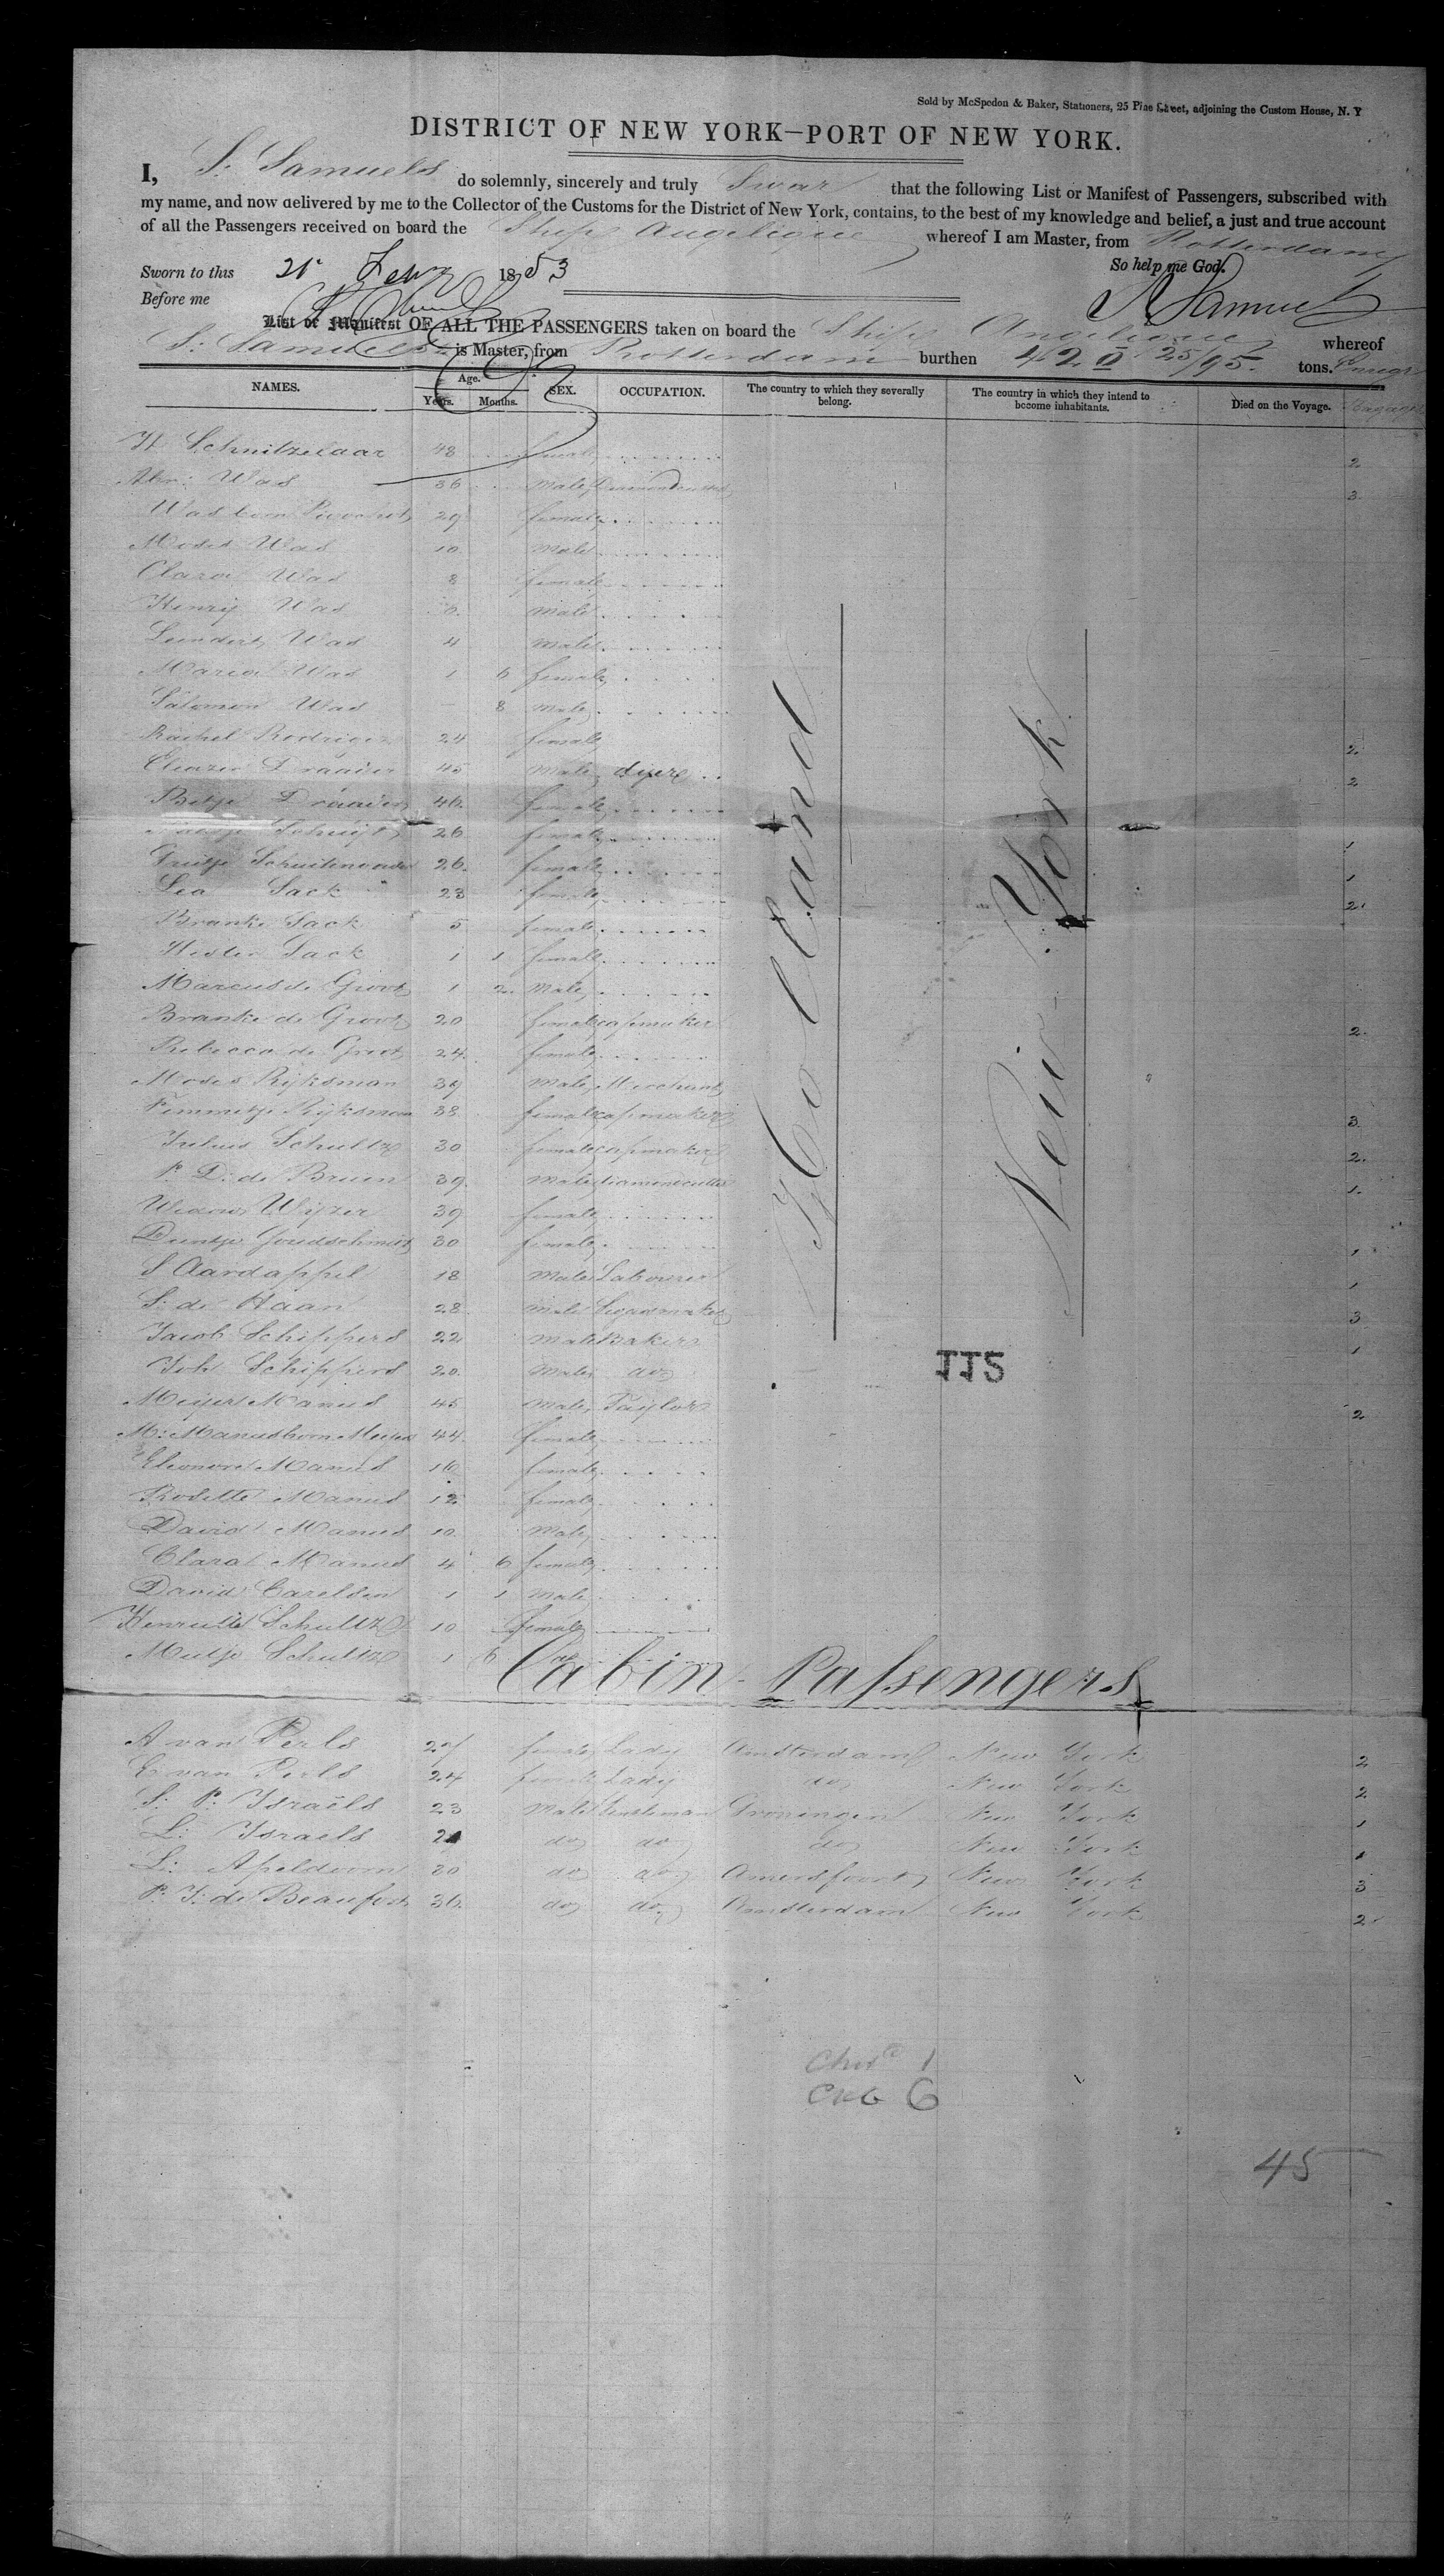 Sold by McSpedon & Baker, Stationers, 25 Pine Street, adjoining the Custom House, N. Y
DISTRICT OF NEW YORK—PORT OF NEW YORK.
I, S. Samuels do solemnly, sincerely and truly Swear that the following List or Manifest of Passengers, subscribed with
my name, and now delivered by me to the Collector of the Customs for the District of New York, contains, to the best of my knowledge and belief, a just and true account
of all the Passengers received on board the Ship Angelique whereof I am Master, from Rotterdam
Sworn to this 21 1853 So help me God.
Before me S Samuels
List or Manifest OF ALL THE PASSENGERS taken on board the Ship Angelique whereof
S: Samuels is Master, from Rotterdam burthen 420 25/95. tons.
NAMES. Age. Years. Months. SEX. OCCUPATION. The country to which they severally belong. The country in which they intend to become inhabitants. Died on the Voyage. Bagage
H Schnitzelaar 48 female 2
Abr: Was 36 male Diamondcutter 3
Was born 29 female
Moses Was 10 male
Clara Was 8 female
Henry Was male
Leendert Was 4 male
Maria Was 1 6 female
Salomon Was 8 male
Rachel Rodrigez 24 female 2
Eleazer Draaier 45 male dyer 2
Betje Draaier 46 female
26 female 1
Grietje 26 female 1
Lea Sack 23 female 2
Branke Sack 5 female
Hester Sack 1 1 female
Marcus de Groot 1 2 male
Branke de Groot 20 female capmaker 2
Rebecca de Groot 24 female
Moses Rijksman 39 male Merchant
Femmetje Rijksman 38 female capmaker 3
Schultz 30 female capmaker 2.
P. D: de Bruin 39 male diamondcutter 1.
Widow Wijzer 39 female
Duntje Goudschmidt 30 female 1
S Aardappel 18 male Labourer 1
S: de Haan 28 male Segarmaker 3
Jacob Schippers 22 male Baker 1
Joh Schippers 20 male do
Meijer Manus 45 male Taylor 2
M: Manus born Meijer 44 female
Eleonore Manus 16 female
Rosette Manus 12 female
David Manus 10 male
Clara Manus 4 6 female
David Carelsen 1 1 male
Henriette Schultz 10 female
Metje Schultz 1 6 do
Holland
New York
115
Cabin Passengers
A van Perls 27 female Lady Amsterdam New York 2
E van Perls 24 female Lady do New York 2
S: P: Israëls 23 male Gentleman Groningen New York 1
L: Israels do do do New York 1
L: Apeldoorn 30 do do Amersfoort New York 3
P: J: de Beaufort 36 do do Amsterdam New York 2
1
Cab 6
45